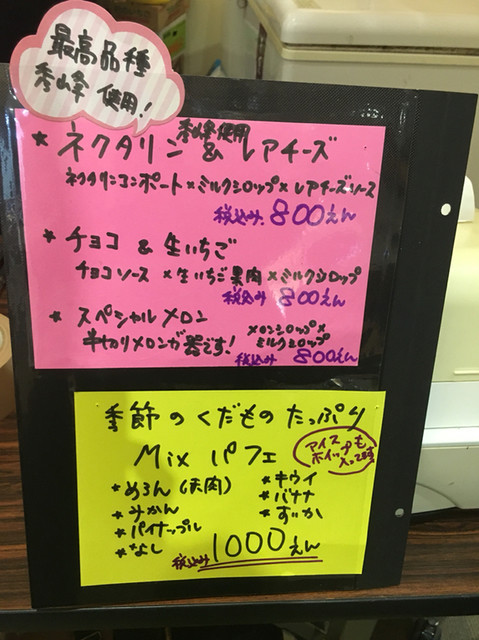 最高品種
秀峰 使用!
秀峰使用
★ ネクタリン & レアチーズ
ネクタリンコンポート×ミルクシロップ×レアチーズソース
税込み 800えん
★ チョコ & 生いちご
チョコソース × 生いちご果肉×ミルクシロップ
税込み 800えん
★ スペシャルメロン
半切りメロンが器です! メロンシロップ×
ミルクシロップ
税込み 800えん
季節のくだもの たっぷり
Mix パフェ
アイス
ホイップも
入ってます
★めろん(果肉) ★キウイ
★みかん ★バナナ
★パイナップル ★すいか
★なし
税込み 1000えん